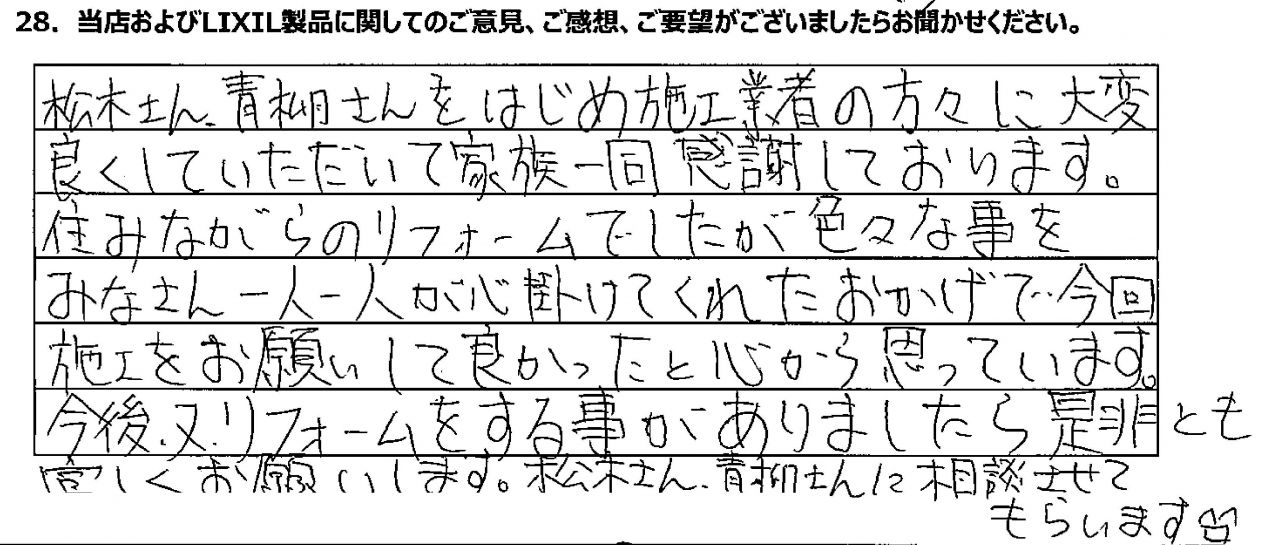 28. 当店およびLIXIL製品に関してのご意見、ご感想、ご要望がございましたらお聞かせください。
松木さん、青柳さんをはじめ施工業者の方々に大変
良くしていただいて家族一同感謝しております。
住みながらのリフォームでしたが色々な事を
みなさん一人一人が心掛けてくれたおかげで今回
施工をお願いして良かったと心から思っています。
今後、又、リフォームをする事がありましたら是非とも
宜しくお願いします。松木さん、青柳さんに相談させて
もらいます